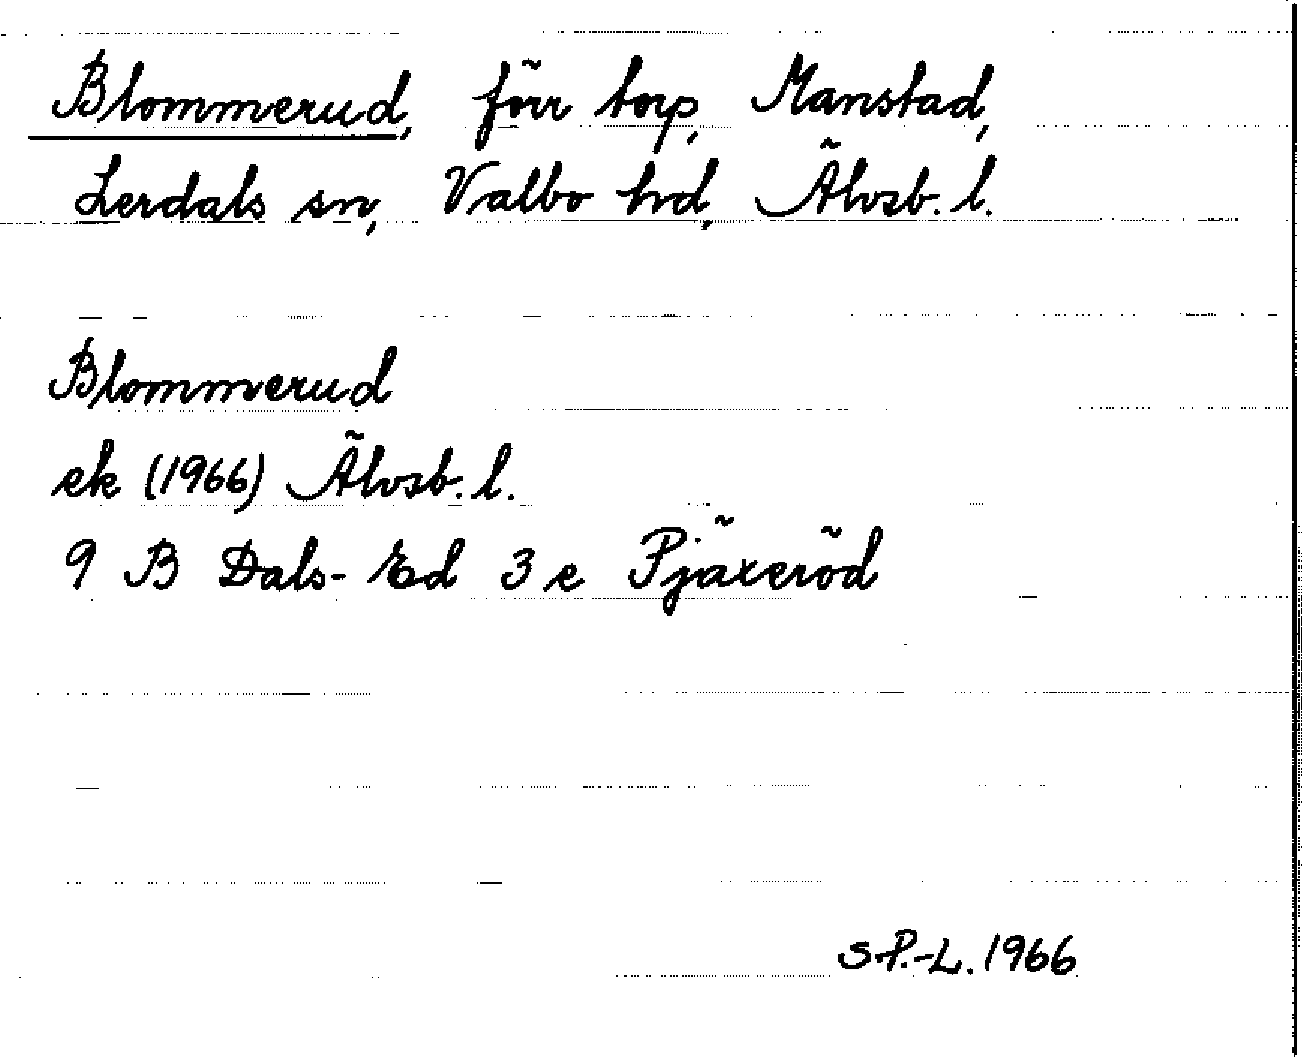 Blommerud, förr torp, Manstad,
Lerdals sn, Valbo hd, Älvsb. l.
Blommerud
ek (1966) Älvsb. l.
9 B Dals-Ed 3 e Pjäxeröd
S P.-L. 1966